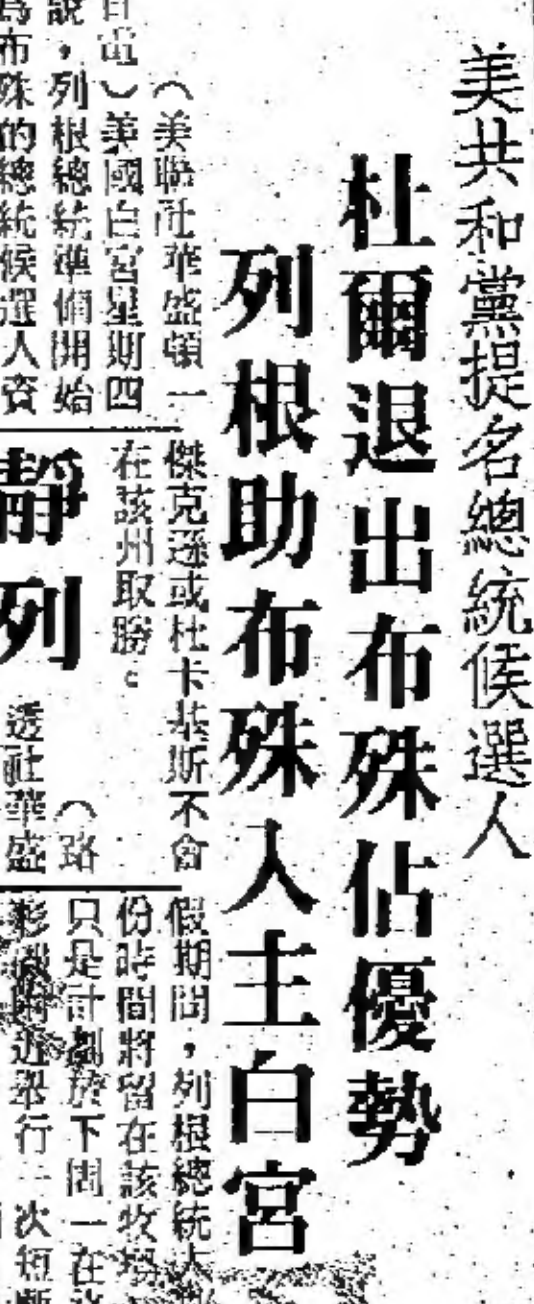 美共和黨提名總統候選人
杜爾退出布殊佔優勢
列根助布殊入主白宮
（美聯社華盛頓一
日電）美國白宮星期四
說，列根總統準備開始
為布殊的總統候選人資
傑克遜或杜卡基斯不會
在該州取勝。
靜列
（路
透社華盛
假期間，列根總統大
份時間將留在該牧場
只是計劃於下周一在洛
杉磯附近舉行一次短暫